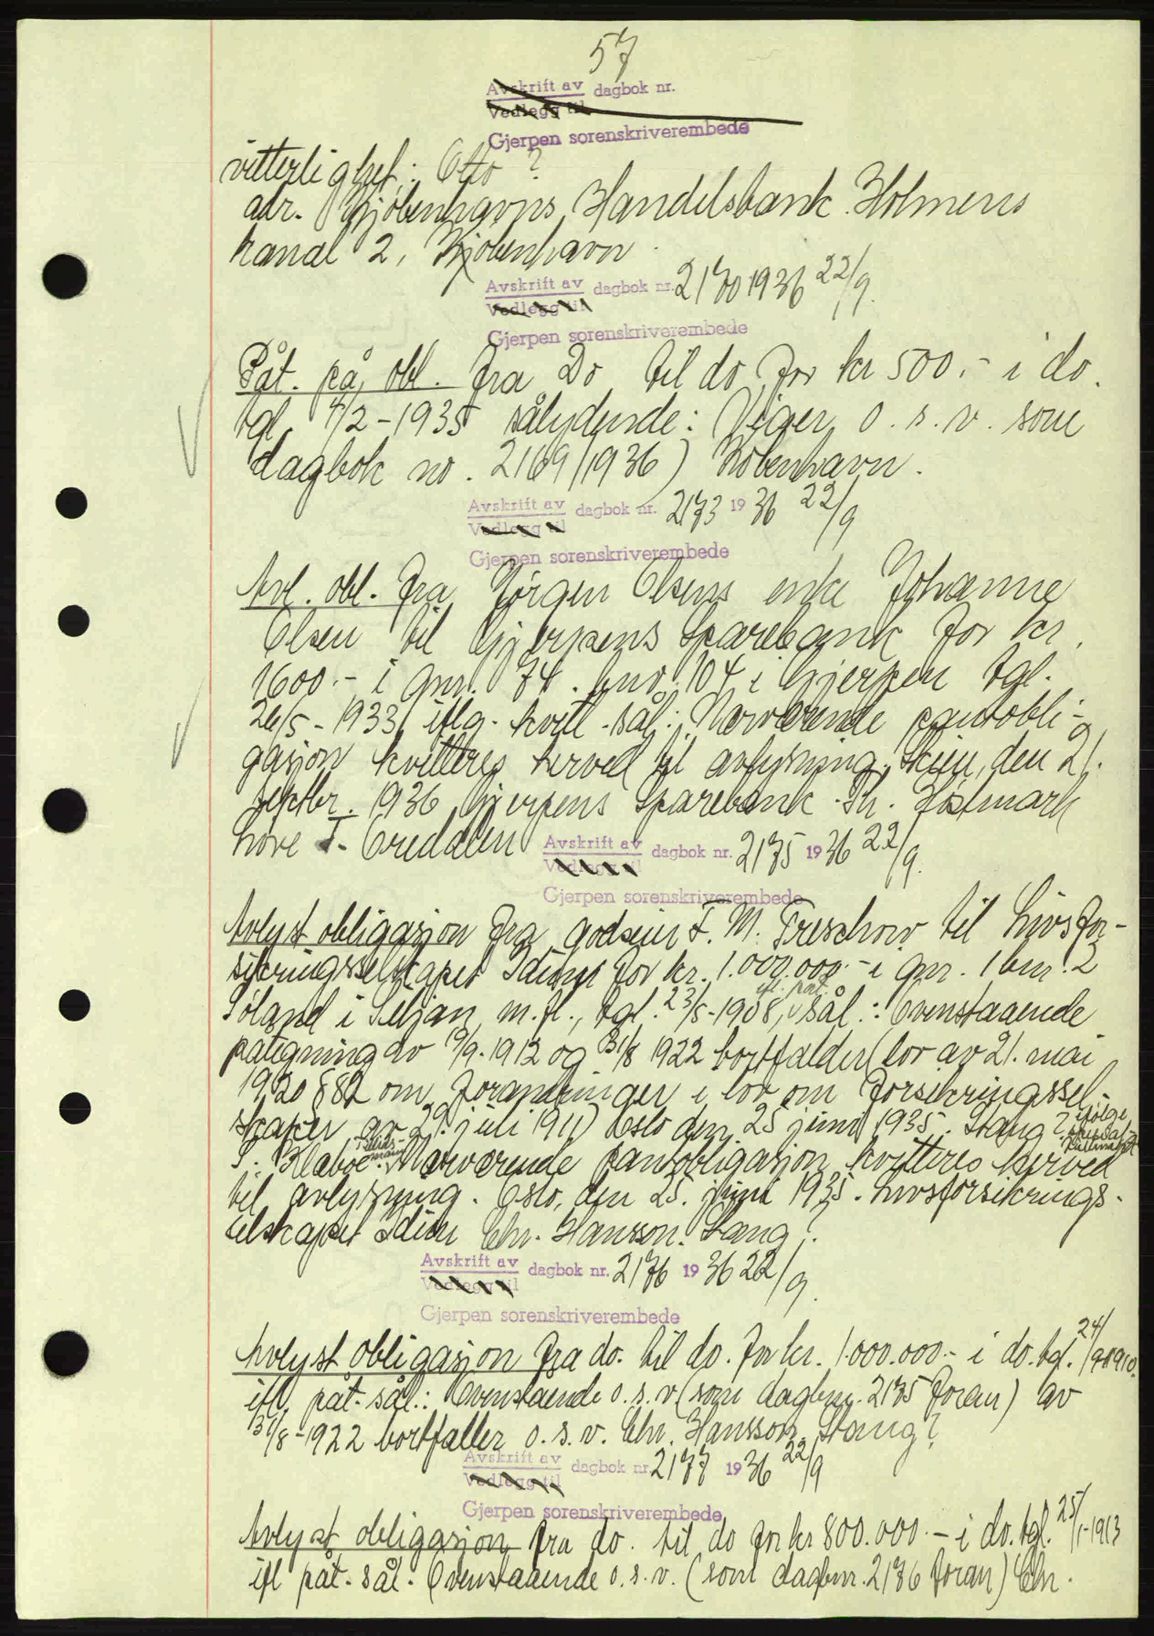 57
Avskrift av dagbok nr.
Vedlegg til
Gjerpen sorenskriverembede
vitterlighet: Otto ?
adr. Kjøbenhavns Handelsbank Holmens
kanal 2, Kjøbenhavn.
Avskrift av dagbok nr. 2170 1936 22/9.
Vedlegg til
Gjerpen sorenskriverembede
Påt. på obl. fra Do til do for kr 500.- i do.
tgl. 7/2-1935 sålydende: Viger o.s.v. som
dagbok no. 2169/1936) København.
Avskrift av dagbok nr. 2173 1936 22/9
Vedlegg til
Gjerpen sorenskriverembede
Avl. obl. fra Jørgen Olsens enke Johanne
Olsen til Gjerpens Sparebank for kr.
1600.- i gnr. 74. bnr. 104 i Gjerpen tgl.
26/5-1933, iflg. kvitt. sål: Nærværende pantobli-
gasjon kvitteres herved til avlysning. Skien, den 21.
septbr. 1936. Gjerpens Sparebank. Th. Holmark
Avskrift av dagbok nr. 2175 1936 22/9.
Vedlegg til
Gjerpen sorenskriverembede
Avlyst obligasjon fra godseier F. M. Treschow til Livsfor-
sikringsselskapet Idun for kr. 1.000.000.- i gnr. 1 bnr. 2
i Siljan m.fl., tgl. 23/5-1908, ifl. påt. sål.: Ovenstaaende
påtegning av 19/9.1912 og 31/8 1922 bortfalder (lov av 21. mai
1920 § 82 om forandringer i lov om forsikringssel-
skaper av 29. juli 1911) Oslo den 25 juni 1935. Stang ? ifølge
Nærværende pantobligasjon kvitteres herved
til avlysning. Oslo, den 25. juni 1935. Livsforsikrings-
selskapet Idun Chr. Hansson. Stang ?
Avskrift av dagbok nr. 2176 1936 22/9.
Vedlegg til
Gjerpen sorenskriverembede
Avlyst obligasjon fra do. til do. for kr. 1.000.000.- i do. tgl. 24/9-1910.
ifl. påt. sål.: Ovenstaaende o.s.v. (som dagbnr. 2175 foran) av
31/8-1922 bortfaller o.s.v. Chr. Hansson. Stang ?
Avskrift av dagbok nr. 2177 1936 22/9
Vedlegg til
Gjerpen sorenskriverembede
Avlyst obligasjon fra do. til do for kr 800.000.- i do. tgl. 25/1-1913
ifl påt. sål. Ovenstaaende o.s.v. (som dagbnr. 2176 foran) Chr.